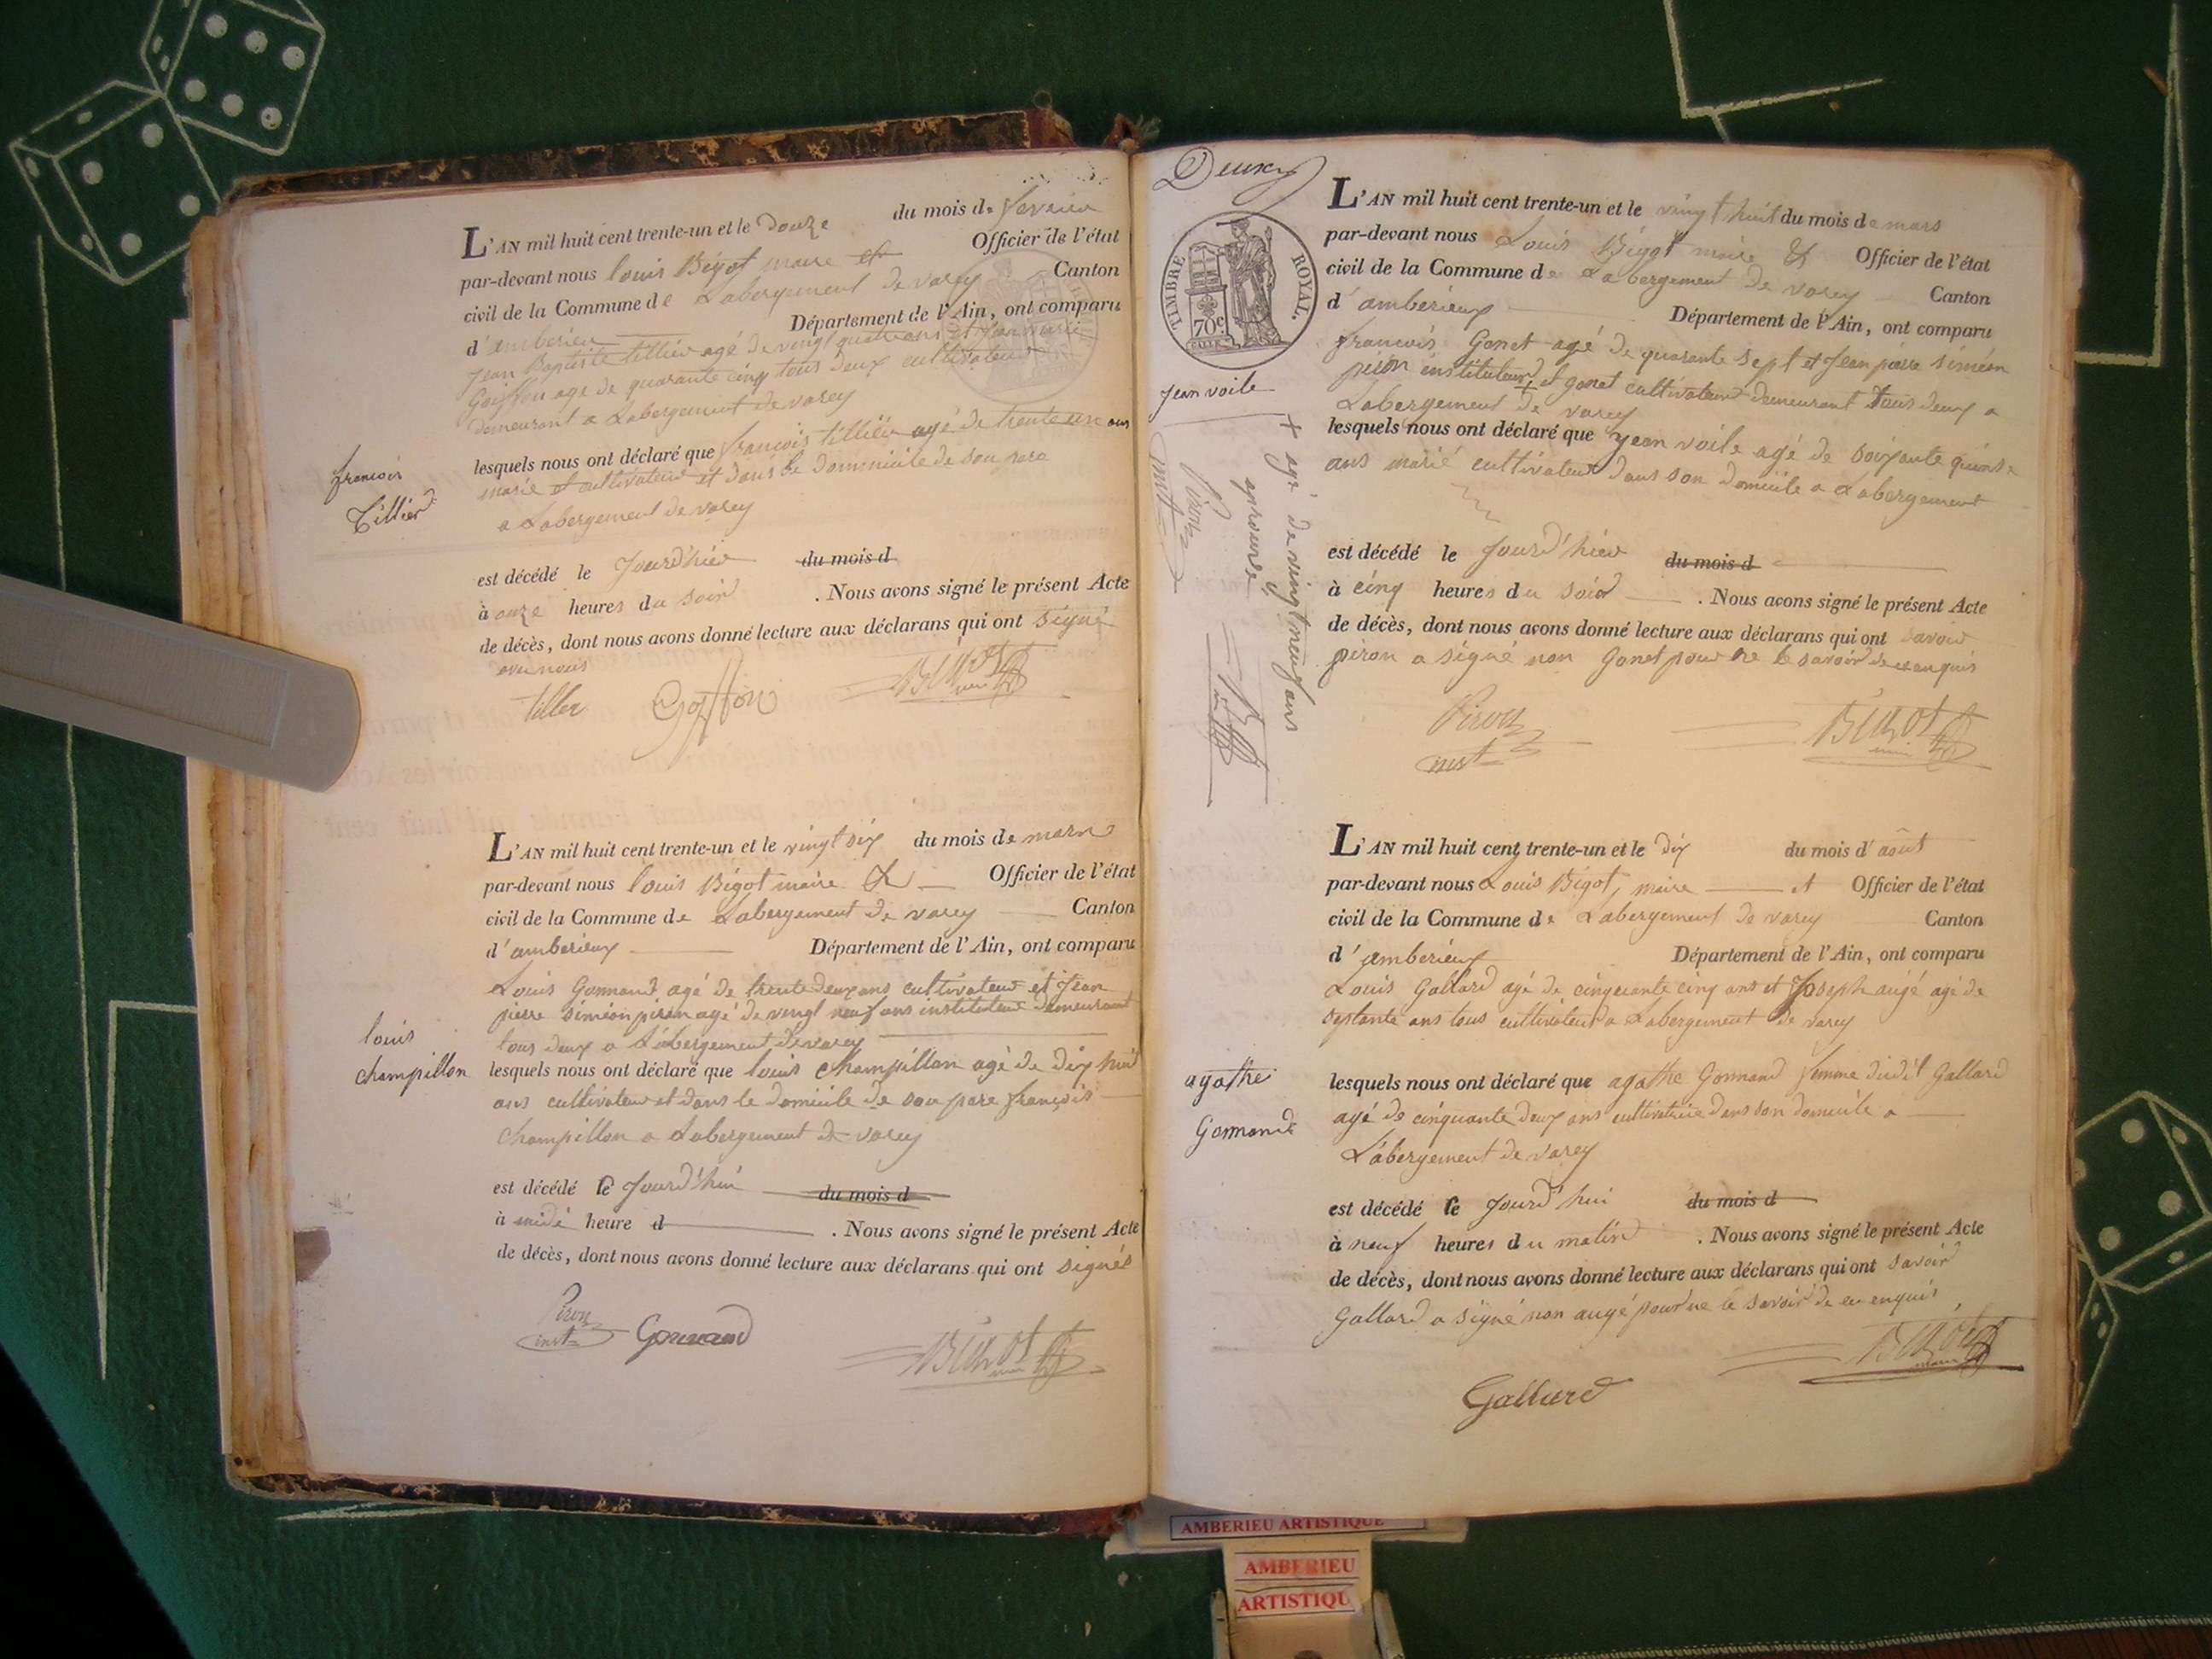 L'AN mil huit cent trente-un et le Douze du mois de fevrier
par-devant nous louis Bigot maire et Officier de l'état
civil de la Commune de Labergement de varey Canton
d'amberieu Département de l'Ain, ont comparu
Jean Baptiste tillier agé de vingt quatre ans et Jean marie
Goiffon age de quarante cinq tous deux cultivateur
demeurant a Labergement de varey
lesquels nous ont déclaré que francois tillier agé de trente un ans
marié et cultivateur et dans le dommicile de son pere
a Labergement de varey
francois
Tillier
est décédé le Jourd'hier du mois d
à onze heures du soir . Nous avons signé le présent Acte
de décès, dont nous avons donné lecture aux déclarans qui ont signé
avec nous
tiller Goiffon Bigot
L'AN mil huit cent trente-un et le vingt six du mois de mars
par-devant nous louis Bigot maire & Officier de l'état
civil de la Commune de Labergement de varey Canton
d'amberieux Département de l'Ain, ont comparu
Louis Gonnand agé de trente deux ans cultivateur et Jean
pierre siméon piron agé de vingt neuf ans instituteur demeurant
tous deux a Labergement de varey
louis
champillon
lesquels nous ont déclaré que louis champillon agé de dix huit
ans cultivateur et dans le domicile de son pere françois
champillon a Labergement de varey
est décédé le Jourd'hui du mois d
à midi heure d . Nous avons signé le présent Acte
de décès, dont nous avons donné lecture aux déclarans qui ont signés
Piron Gonnand Bigot
inst
Deux
TIMBRE ROYAL.
70c
L'AN mil huit cent trente-un et le vingt huit du mois de mars
par-devant nous Louis Bigot maire & Officier de l'état
civil de la Commune de Labergement de varey Canton
d'amberieux Département de l'Ain, ont comparu
francois Gonet agé de quarante sept et Jean pierre siméon
piron instituteur + et gonet cultivateur demeurant tous deux a
Labergement de varey
Jean voile
lesquels nous ont déclaré que Jean voile agé de soixante quinse
ans marié cultivateur dans son domicile a Labergement
+ agé de vingt neuf ans
aprouvé
Piron
inst
Bigot
est décédé le Jourd'hier du mois d
à cinq heures du soir . Nous avons signé le présent Acte
de décès, dont nous avons donné lecture aux déclarans qui ont savoir
piron a signé non Gonet pour ne le savoir de ce enquis
Piron Bigot
inst
L'AN mil huit cent trente-un et le dix du mois d'août
par-devant nous Louis Bigot, maire et Officier de l'état
civil de la Commune de Labergement de varey Canton
d'amberieux Département de l'Ain, ont comparu
Louis Gallard agé de cinquante cinq ans et Joseph augé agé de
septante ans tous cultivateur a Labergement de varey
agathe
Gonnand
lesquels nous ont déclaré que agathe Gonnand femme dudit Gallard
agé de cinquante deux ans cultivatrice dans son domicile a
Labergement de varey
est décédé le Jourd'hui du mois d
à neuf heures du matin . Nous avons signé le présent Acte
de décès, dont nous avons donné lecture aux déclarans qui ont savoir
Gallard a signé non augé pour ne le savoir de ce enquis
Bigot
Gallard
AMBERIEU ARTISTIQUE
AMBERIEU
ARTISTIQU